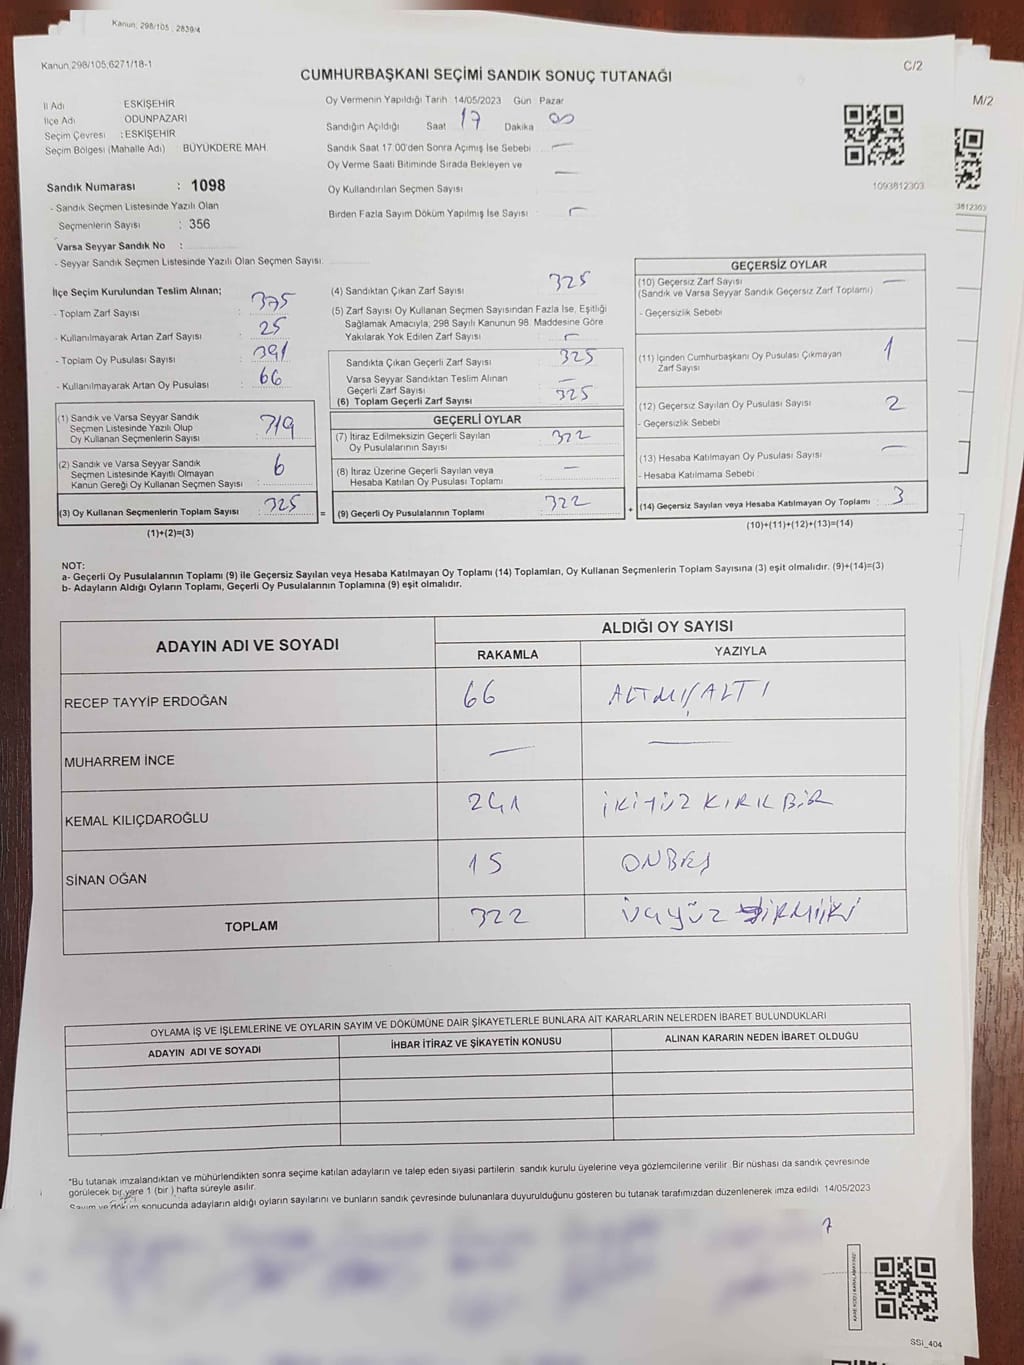 Kanun; 298/105 ; 2839/4
Kanun,298/105;6271/18-1
C/2
M/2
CUMHURBAŞKANI SEÇİMİ SANDIK SONUÇ TUTANAĞI
İl Adı ESKİŞEHİR
İlçe Adı ODUNPAZARI
Seçim Çevresi : ESKİŞEHİR
Seçim Bölgesi (Mahalle Adı) BÜYÜKDERE MAH
Sandık Numarası : 1098
- Sandık Seçmen Listesinde Yazılı Olan
Seçmenlerin Sayısı : 356
Varsa Seyyar Sandık No :
- Seyyar Sandık Seçmen Listesinde Yazılı Olan Seçmen Sayısı:
Oy Vermenin Yapıldığı Tarih 14/05/2023 Gün Pazar
Sandığın Açıldığı Saat 17 Dakika 00
Sandık Saat 17.00'den Sonra Açımış İse Sebebi —
Oy Verme Saati Bitiminde Sırada Bekleyen ve —
Oy Kullandırılan Seçmen Sayısı
Birden Fazla Sayım Döküm Yapılmış İse Sayısı —
1093812303
3812303
İlçe Seçim Kurulundan Teslim Alınan;
- Toplam Zarf Sayısı : 375
- Kullanılmayarak Artan Zarf Sayısı : 25
- Toplam Oy Pusulası Sayısı : 391
- Kullanılmayarak Artan Oy Pusulası : 66
(1) Sandık ve Varsa Seyyar Sandık
Seçmen Listesinde Yazılı Olup
Oy Kullanan Seçmenlerin Sayısı : 319
(2) Sandık ve Varsa Seyyar Sandık
Seçmen Listesinde Kayıtlı Olmayan
Kanun Gereği Oy Kullanan Seçmen Sayısı : 6
(3) Oy Kullanan Seçmenlerin Toplam Sayısı : 325
(1)+(2)=(3)
(4) Sandıktan Çıkan Zarf Sayısı : 325
(5) Zarf Sayısı Oy Kullanan Seçmen Sayısından Fazla İse, Eşitliği
Sağlamak Amacıyla; 298 Sayılı Kanunun 98. Maddesine Göre
Yakılarak Yok Edilen Zarf Sayısı : —
Sandıkta Çıkan Geçerli Zarf Sayısı : 325
Varsa Seyyar Sandıktan Teslim Alınan
Geçerli Zarf Sayısı : —
(6) Toplam Geçerli Zarf Sayısı : 325
GEÇERLİ OYLAR
(7) İtiraz Edilmeksizin Geçerli Sayılan
Oy Pusulalarının Sayısı : 322
(8) İtiraz Üzerine Geçerli Sayılan veya
Hesaba Katılan Oy Pusulası Toplamı : —
= (9) Geçerli Oy Pusulalarının Toplamı : 322
GEÇERSİZ OYLAR
(10) Geçersiz Zarf Sayısı : —
(Sandık ve Varsa Seyyar Sandık Geçersiz Zarf Toplamı)
- Geçersizlik Sebebi
(11) İçinden Cumhurbaşkanı Oy Pusulası Çıkmayan 1
Zarf Sayısı
(12) Geçersiz Sayılan Oy Pusulası Sayısı : 2
- Geçersizlik Sebebi
(13) Hesaba Katılmayan Oy Pusulası Sayısı : —
- Hesaba Katılmama Sebebi
+ (14) Geçersiz Sayılan veya Hesaba Katılmayan Oy Toplamı : 3
(10)+(11)+(12)+(13)=(14)
NOT:
a- Geçerli Oy Pusulalarının Toplamı (9) ile Geçersiz Sayılan veya Hesaba Katılmayan Oy Toplamı (14) Toplamları, Oy Kullanan Seçmenlerin Toplam Sayısına (3) eşit olmalıdır. (9)+(14)=(3)
b- Adayların Aldığı Oyların Toplamı, Geçerli Oy Pusulalarının Toplamına (9) eşit olmalıdır.
ADAYIN ADI VE SOYADI
ALDIĞI OY SAYISI
RAKAMLA YAZIYLA
RECEP TAYYİP ERDOĞAN 66 ALTMIŞALTI
MUHARREM İNCE — —
KEMAL KILIÇDAROĞLU 241 İKİYÜZ KIRK BİR
SİNAN OĞAN 15 ONBEŞ
TOPLAM 322 ÜÇYÜZ YİRMİİKİ
OYLAMA İŞ VE İŞLEMLERİNE VE OYLARIN SAYIM VE DÖKÜMÜNE DAİR ŞİKAYETLERLE BUNLARA AİT KARARLARIN NELERDEN İBARET BULUNDUKLARI
ADAYIN ADI VE SOYADI İHBAR İTİRAZ VE ŞİKAYETİN KONUSU ALINAN KARARIN NEDEN İBARET OLDUĞU
"Bu tutanak imzalandıktan ve mühürlendikten sonra seçime katılan adayların ve talep eden siyasi partilerin sandık kurulu üyelerine veya gözlemcilerine verilir. Bir nüshası da sandık çevresinde
görülecek bir yere 1 (bir) hafta süreyle asılır.
Sayım ve döküm sonucunda adayların aldığı oyların sayılarını ve bunların sandık çevresinde bulunanlara duyurulduğunu gösteren bu tutanak tarafımızdan düzenlenerek imza edildi. 14/05/2023
SSİ_404